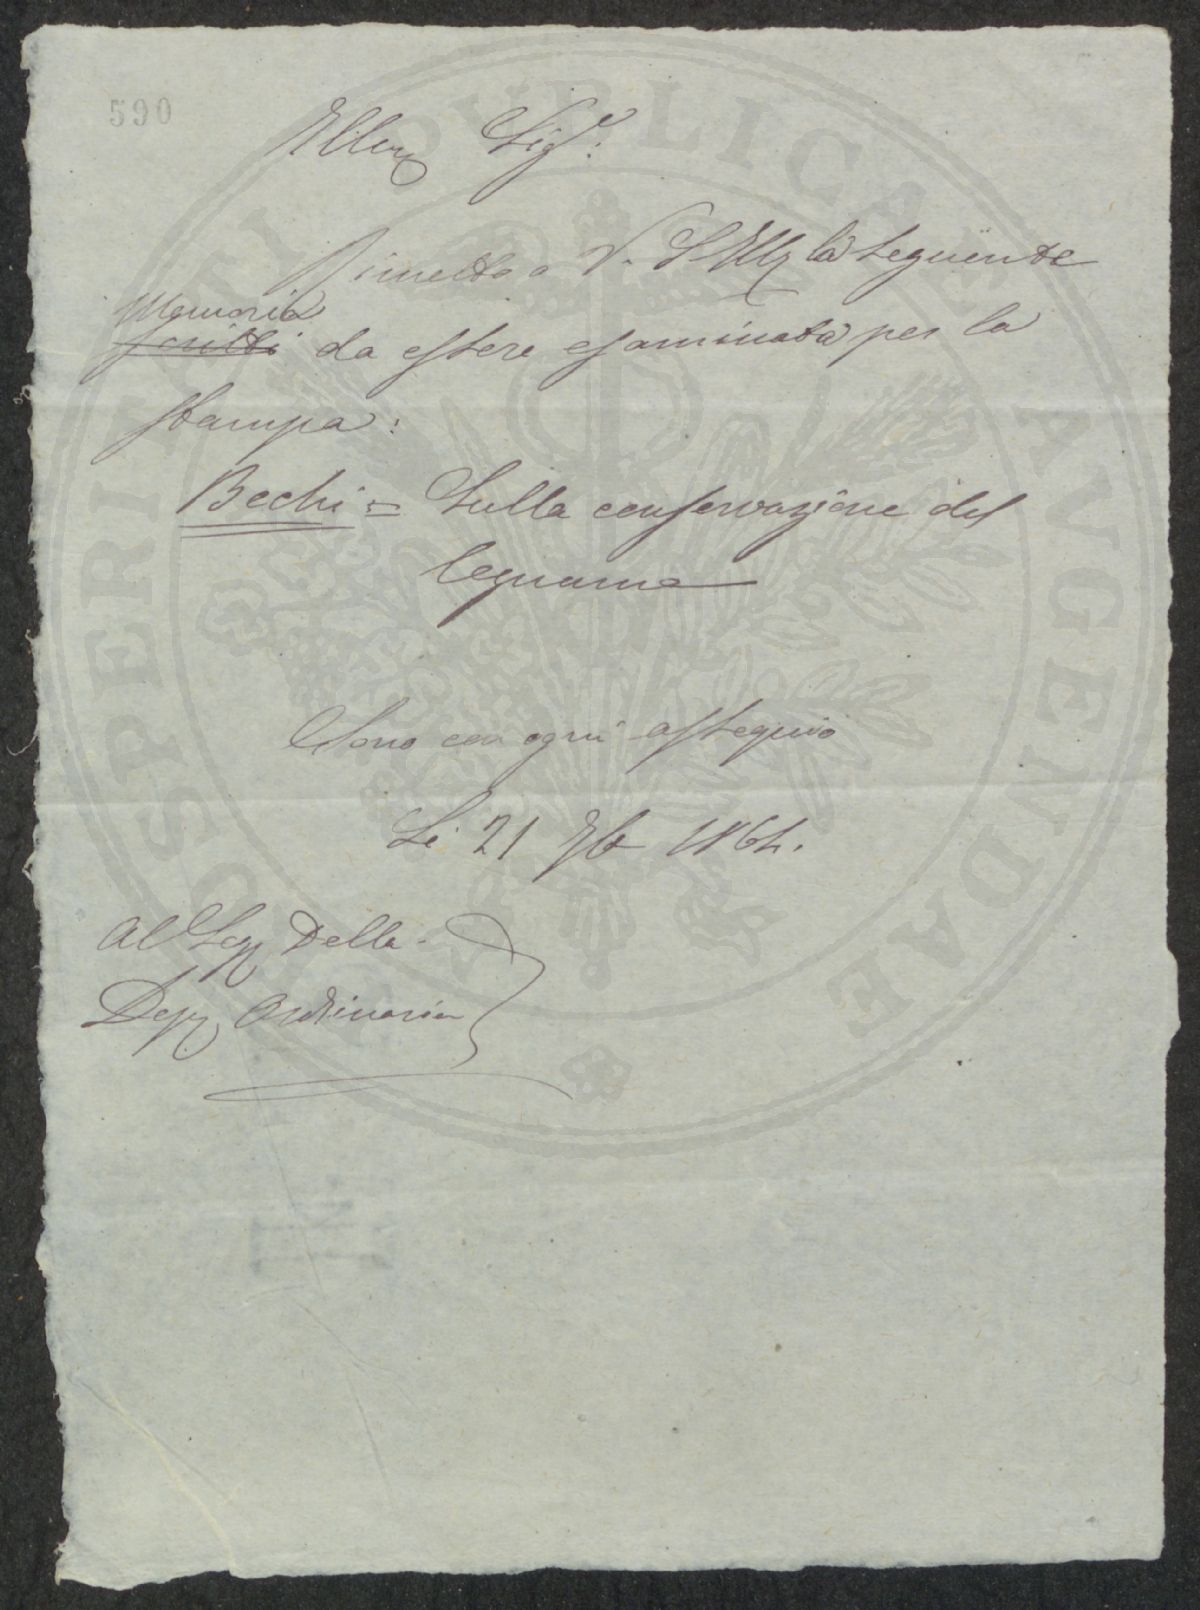 590
Illmo Sigre.
Rimetto a V. S. Illma la seguente
Memoria
scritti da essere esaminata per la
stampa:
Bechi = Sulla conservazione del
legname
Sono con ogni ossequio
Li 21 7bre 1864.
Al Segr Della
Depne Ordinaria
PROSPERITATI PUBLICAE AVGENDAE